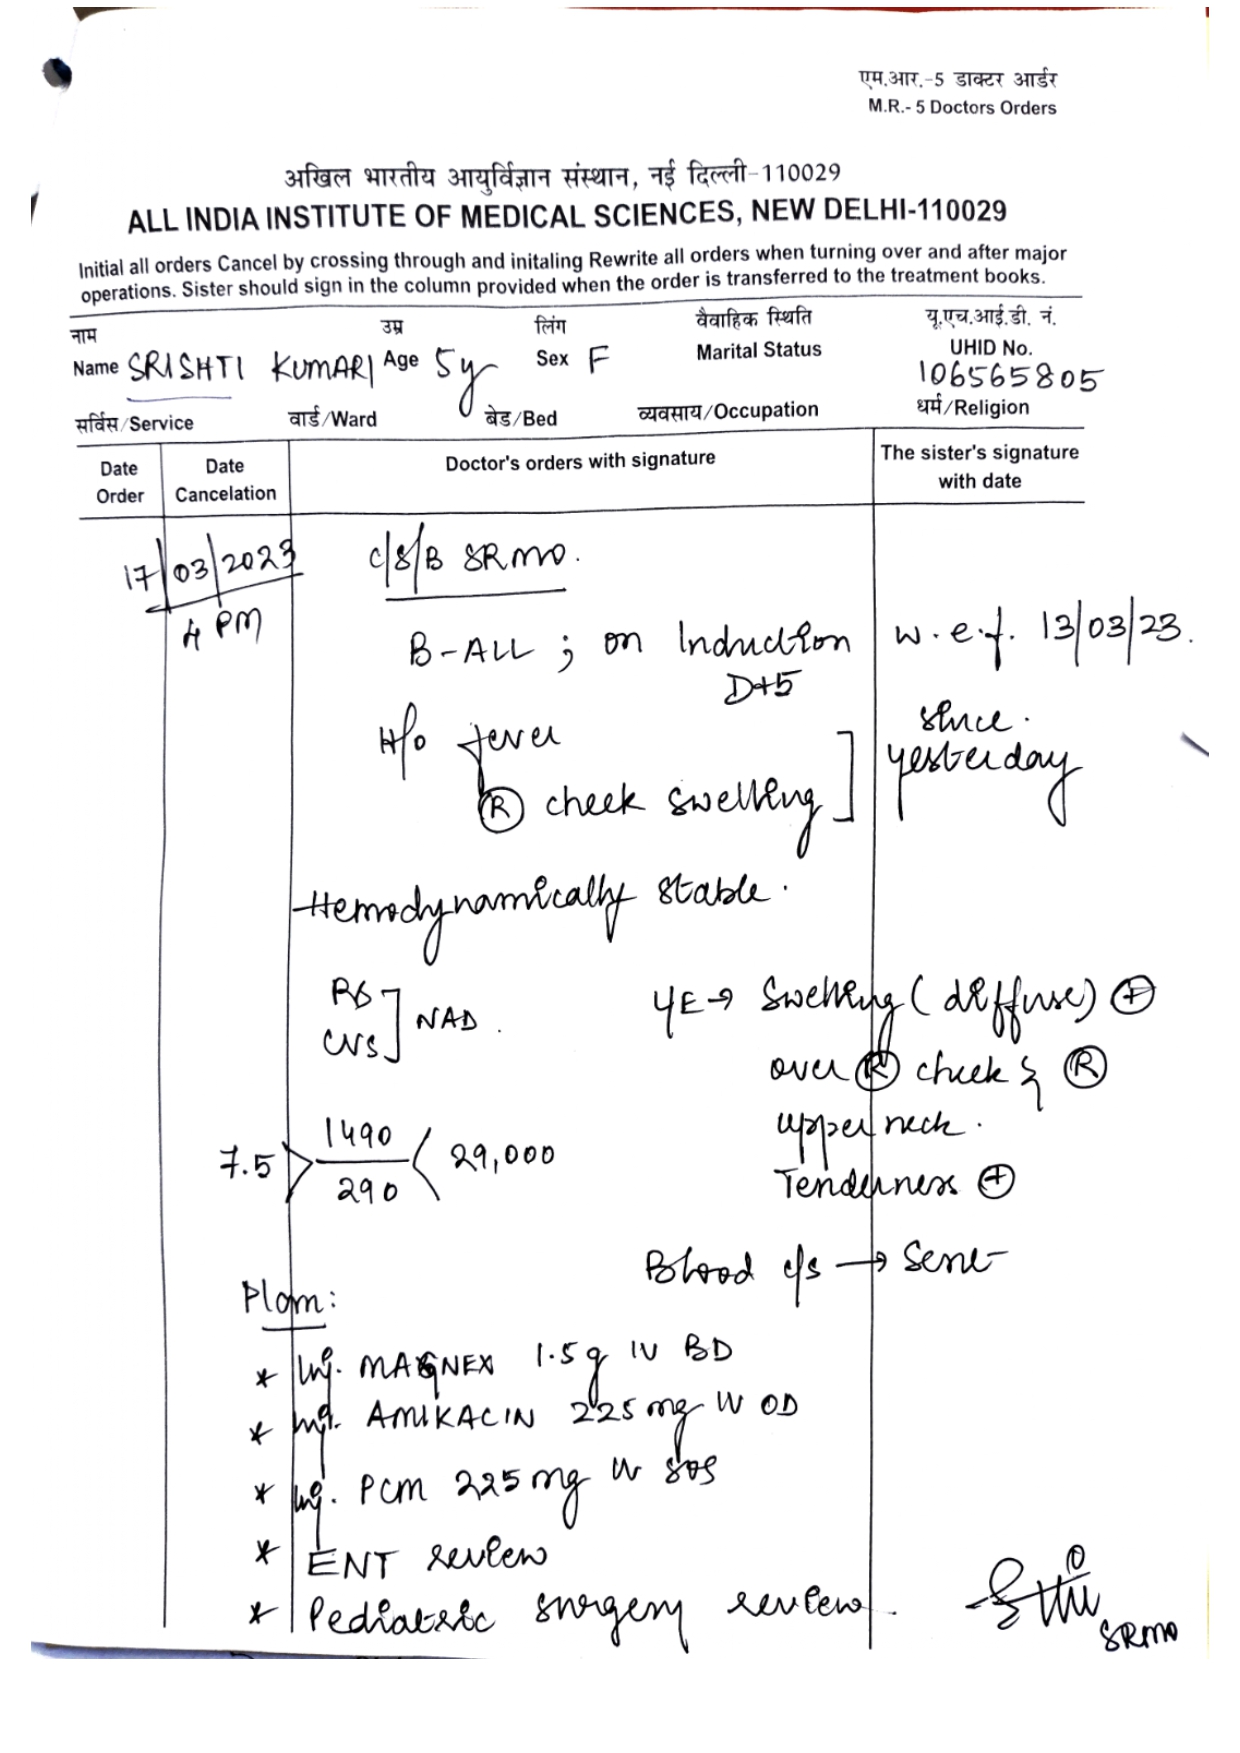 एम.आर.-5 डाक्टर आर्डर
M.R.- 5 Doctors Orders
अखिल भारतीय आयुर्विज्ञान संस्थान, नई दिल्ली-110029
ALL INDIA INSTITUTE OF MEDICAL SCIENCES, NEW DELHI-110029
Initial all orders Cancel by crossing through and initaling Rewrite all orders when turning over and after major
operations. Sister should sign in the column provided when the order is transferred to the treatment books.
नाम उम्र लिंग वैवाहिक स्थिति यू.एच.आई.डी. नं.
Name SRISHTI KUMARI Age 5y Sex F Marital Status UHID No.
106565805
सर्विस/Service वार्ड/Ward बेड/Bed व्यवसाय/Occupation धर्म/Religion
Date Order Date Cancelation Doctor's orders with signature The sister's signature with date
17/03/2023 C/S/B SRMO.
4 PM
B-ALL ; on Induction w.e.f. 13/03/23.
D+5
H/o fever since.
Ⓡ cheek swelling ] yesterday
Hemodynamically stable.
RS
CVS ] NAD.
L/E → Swelling (diffuse) ⊕
over Ⓡ cheek & Ⓡ
upper neck.
Tenderness ⊕
7.5 > 1490 / 290 < 29,000
Blood c/s → Sent
Plan:
* Inj. MAGNEX 1.5g IV BD
* Inj. AMIKACIN 225 mg IV OD
* Inj. PCM 225 mg IV SOS
* ENT review
* Pediatric surgery review.
SRMO